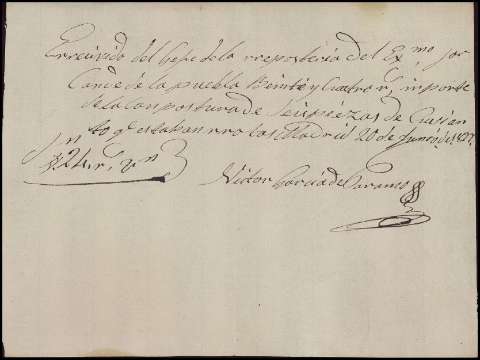 Er recivido del Gefe de la rreposteria del Ex.mo Sor
Conde de la puebla Beinte y Cuatro r.s inporte
de la conpostura de Seis piezas de Crista
to q.e estaban rrotas Madrid 20 de Junio de 1827
Son 24 r.s v.n
Victor Garcia de Paramo